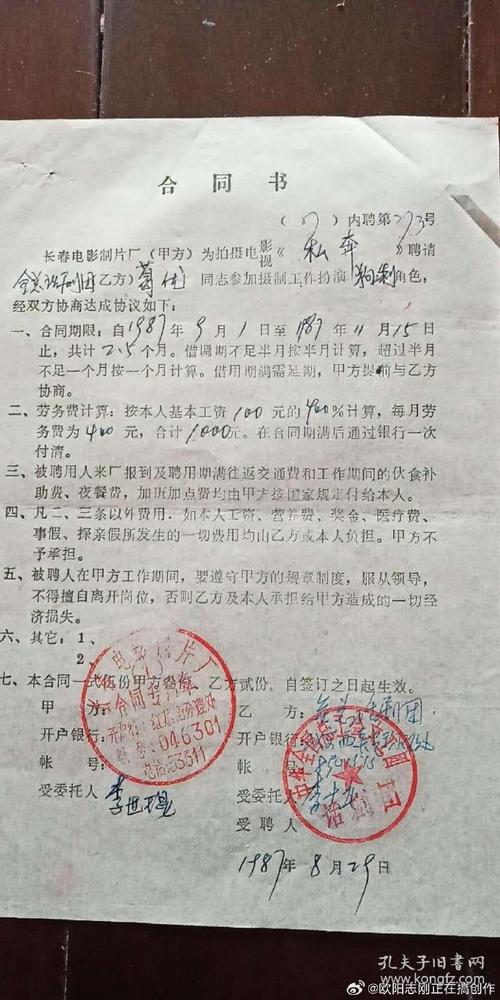 合同书
(87)内聘第273号
长春电影制片厂(甲方)为拍摄电影视《私奔》聘请
全总话剧团乙方)葛优同志参加摄制工作扮演角色,
经双方协商达成协议如下:
一、合同期限:自1987年9月1日至1987年11月15日
止,共计2.5个月。借调期不足半月按半月计算,超过半月
不足一个月按一个月计算。借用期满需延期,甲方提前与乙方
协商。
二、劳务费计算:按本人基本工资100元的400%计算,每月劳
务费为400元,合计1000元。在合同期满后通过银行一次
付清。
三、被聘用人来厂报到及聘用期满往返交通费和工作期间的伙食补
助费、夜餐费,加班加点费均由甲方按国家规定付给本人。
四、凡二、三条以外费用,如本人工资、营养费、奖金、医疗费、
事假、探亲假所发生的一切费用均由乙方或本人负担。甲方不
予承担。
五、被聘人在甲方工作期间,要遵守甲方的规章制度,服从领导,
不得擅自离开岗位,否则乙方及本人承担给甲方造成的一切经
济损失。
六、其它:1、
2、
七、本合同一式伍份甲方叁份,乙方贰份。自签订之日起生效。
甲方:
开户银行:
帐号:
受委托人
长春电影制片厂
合同专用章
开户行:红旗街办理处
帐号:046301
电话:53311
乙方:全总话剧团
开户银行:
帐号:
受委托人
受聘人
话剧团
1987年8月29日
孔夫子旧书网
@欧阳志刚正在搞创作